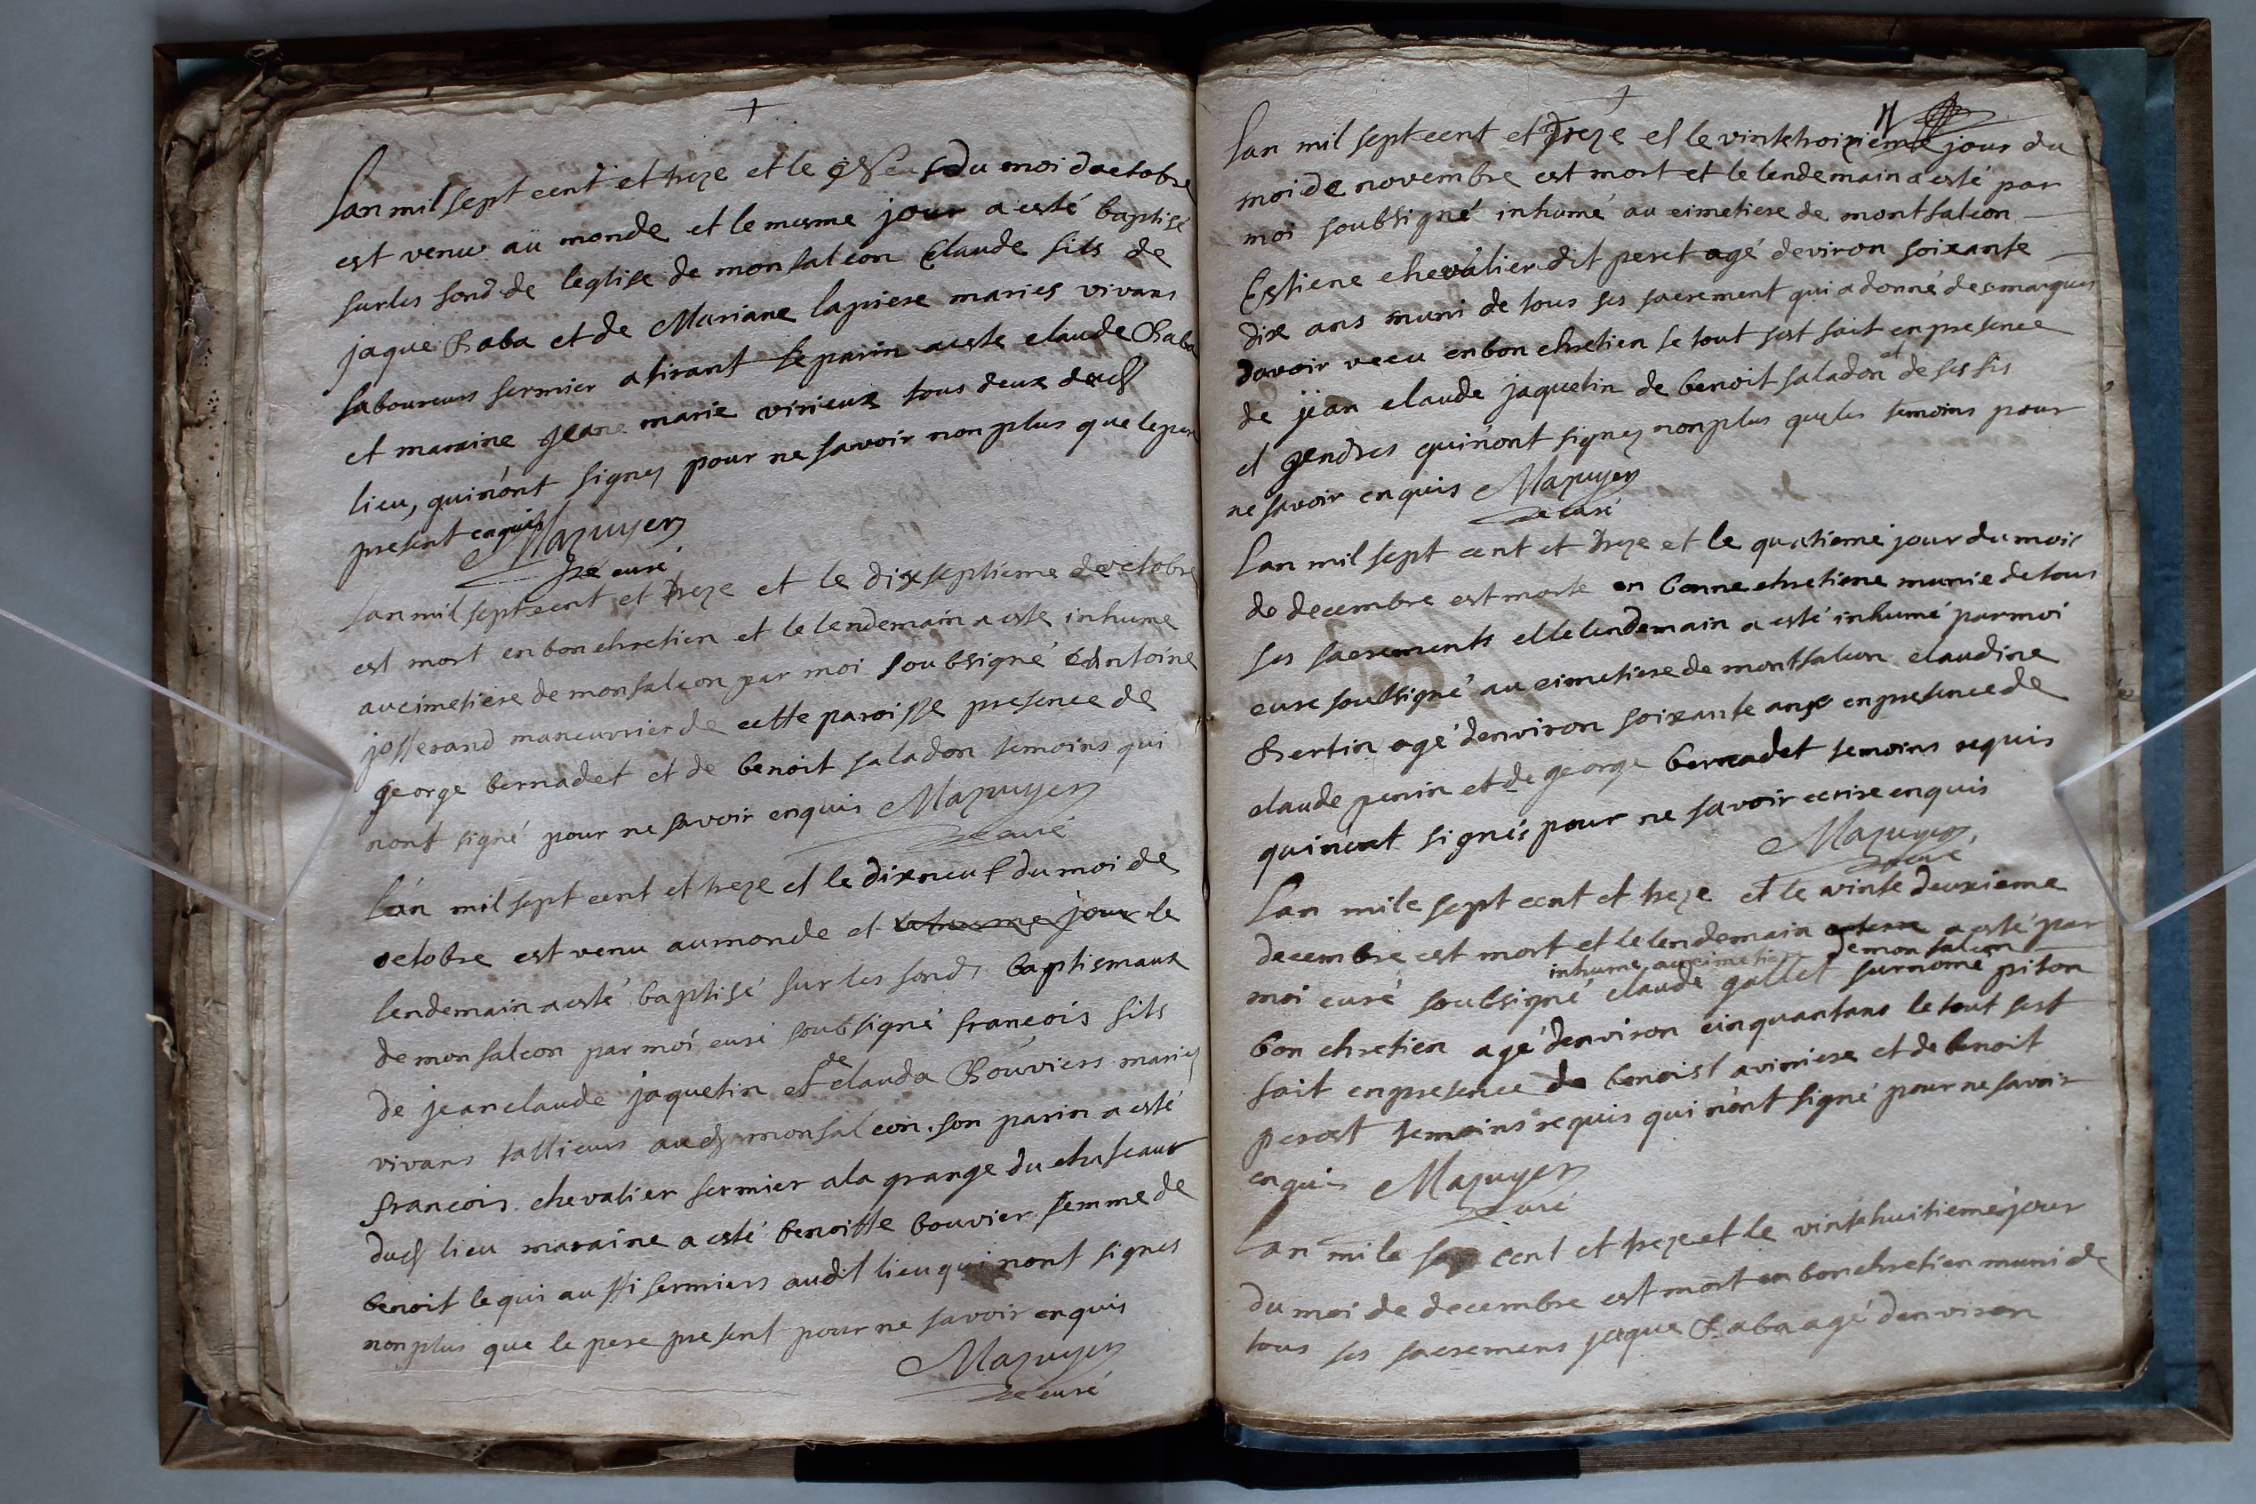 +
Lan mil sept cent et treze et le du moi doctobre
est venu au monde et le mesme jour a esté baptisé
sur les fond de leglise de monfalcon Claude fils de
jaque Baba et de Mariane lapiere maries vivans
laboureurs fermier a tirant le parin a este claude Baba
et maraine jeane marie virieux tous deux dud
lieu, qui nont signes pour ne savoir non plus que le pere
present enquis Mapuyer
curé
Lan mil sept cent et treze et le dixseptieme doctobre
est mort en bon chretien et le lendemain a este inhume
au cimetiere de monfalcon par moi soubsigné Antoine
josserand maneuvrier de cette paroisse presence de
george bernadet et de benoit faladon temoins qui
nont signé pour ne savoir enquis Mapuyer
curé
Lan mil sept cent et treze et le dixneuf du moi de
octobre est venu au monde et le mesme jour le
lendemain a esté baptisé sur les fonds baptismaux
de monfalcon par moi curé soubsigné francois fils
de jean claude jaquetin et de clauda Bouviers maries
vivans tallieurs aud monfalcon. son parin a esté
francois chevalier fermier a la grange du chasteaux
dud lieu maraine a esté benoitte bouvier femme de
benoit lequi aussi fermiers audit lieu qui nont signes
non plus que le pere present pour ne savoir enquis
Mapuyer
curé
+
Lan mil sept cent et treze et le vintetroizieme jour du
moi de novembre est mort et le lendemain a esté par
moi soubsigné inhumé au cimetiere de montfalcon
Estiene chevalier dit peret agé deviron soixante
dix ans muni de tous ses sacrement qui a donné des marques
davoir vecu en bon chretien le tout sest fait en presence
de jean claude jaquetin de benoit faladon et de ses fis
et gendres qui nont signes non plus que les temoins pour
ne savoir enquis Mapuyer
curé
Lan mil sept cent et treze et le quatieme jour du mois
de decembre est morte en bonne chretiene munie de tous
ses sacrements et le lendemain a esté inhumé par moi
cure soubsigné au cimetiere de montfalcon claudine
Bertin agé denviron soixante ans en presence de
claude penin et de george bernadet temoins requis
qui nont signés pour ne savoir ecrire enquis
Mapuyer
curé
Lan mile sept cent et treze et le vinte deuxieme
decembre est mort et le lendemain a esté par
inhume au cimetiere de monfalcon
moi curé soubsigné claude gallet surnomé piton
bon chretien agé denviron cinquantans le tout sest
fait en presence de benoist aviniere et de benoit
perost temoins requis qui nont signé pour ne savoir
enquis Mapuyer
curé
Lan mile sept cent et treze et le vintehuitieme jour
du moi de decembre est mort en bon chretien muni de
tous ses sacremens jaque Baba agé denviron